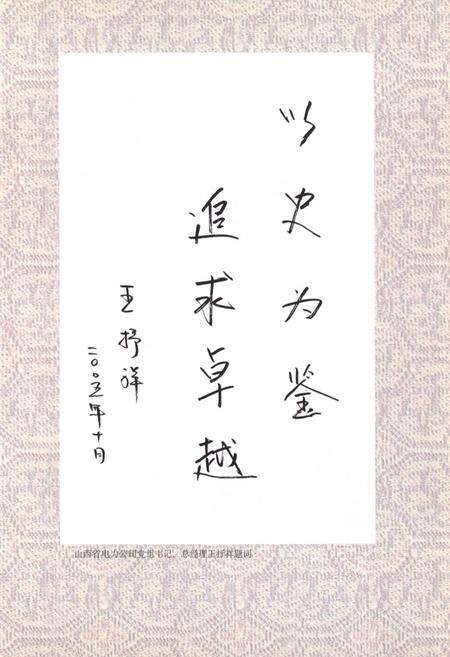 以史为鉴
追求卓越
王抒祥
二〇〇五年十月
山西省电力公司党组书记、总经理王抒祥题词